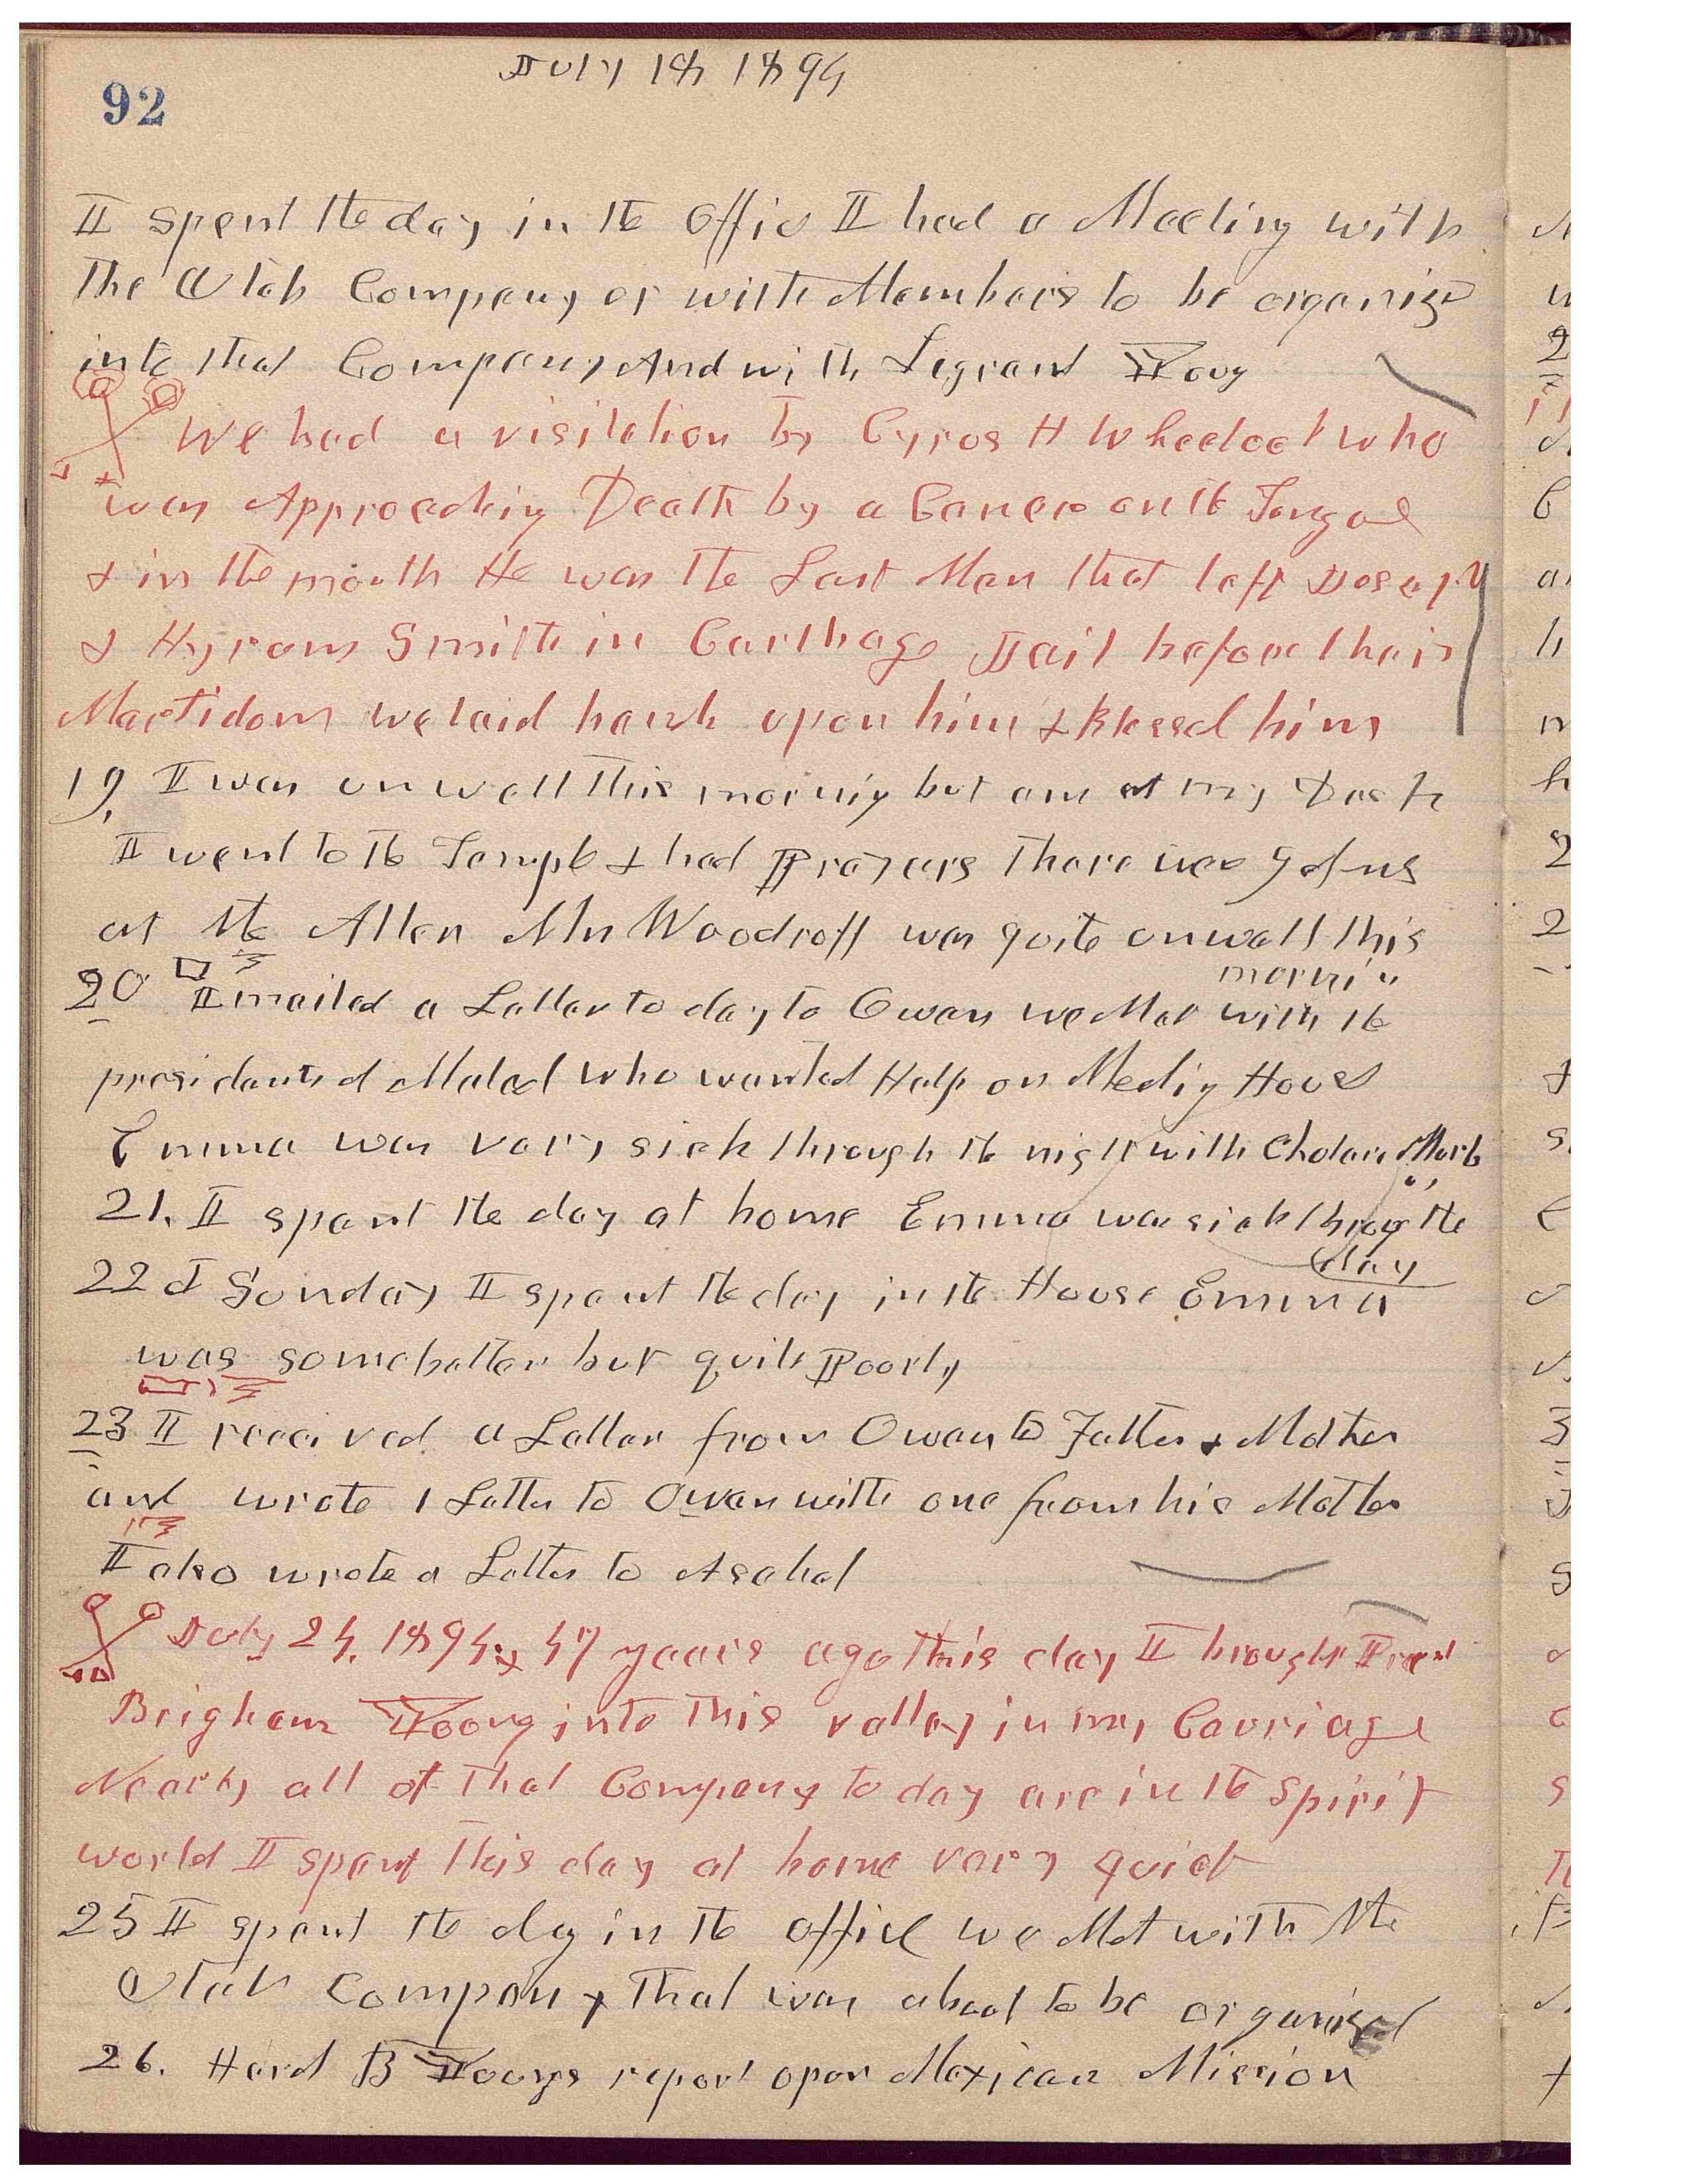 July 18 1894
92
I spent the day in the Office I had a Meeting with
the Utah Company or with Members to be organize
into that Company And with Legrand Young
We had a visitation by Cyrus H Wheelock who
was Approaching Death by a Cancer on the Tongue
& in the mouth He was the Last Man that left Joseph
& Hyrum Smith in Carthage Jail before their
Martidom we laid hands upon him & Blessed him
19. I was unwell this morning but am at my Desk
I went to the Temple & had Prayers There were 9 of us
at the Alter Mrs Woodruff was quite unwell this
morning
20 I mailed a Letter to day to Owen we Met with the
presidents of Malad who wanted Help on Meetig House
Emma was very sick through the night with Cholera Morb
21. I spent the day at home Emma was sick throug the
day
22d Sunday I spent the day in the House Emma
was some better but quite Poorly
23 I received a Letter from Owen to Father & Mother
and wrote 1 Letter to Owen with one from his Mother
I also wrote a Letter to Asahel
July 24, 1894, 47 years ago this day I brought Presdt
Brigham Young into this valley in my Carriage
Nearly all of that Company to day are in the spirit
world I spent this day at home very quiet
25 I spent the day in the office we Met with the
Utah Company that was about to be organised
26. Herd B Youngs report upon Mexican Mission